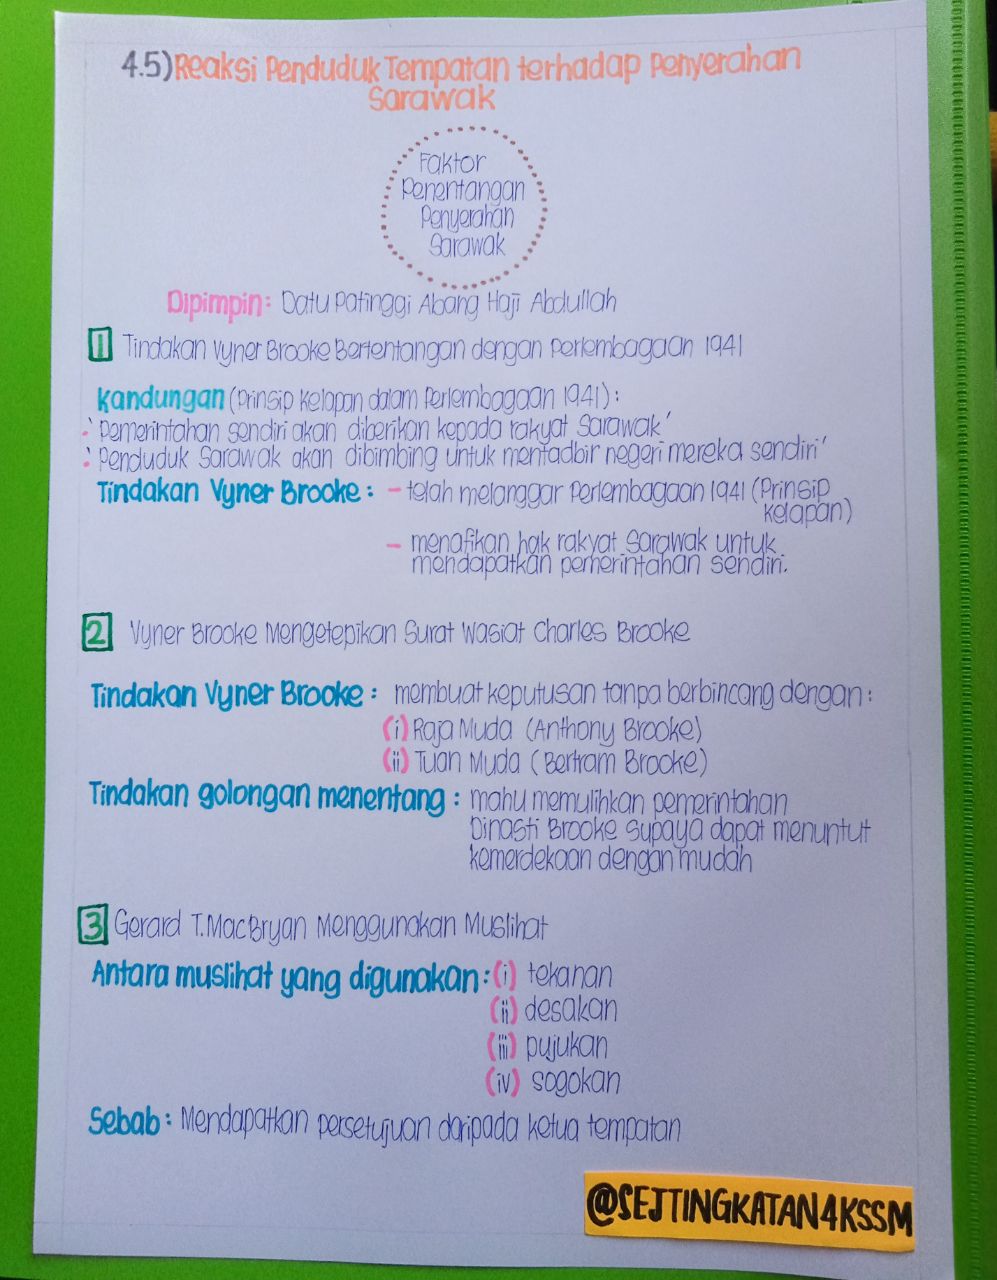 4.5) Reaksi Penduduk Tempatan terhadap Penyerahan
Sarawak
Faktor
Penentangan
Penyerahan
Sarawak
Dipimpin: Datu Patinggi Abang Haji Abdullah
1 Tindakan Vyner Brooke Bertentangan dengan Perlembagaan 1941
Kandungan (Prinsip Kelapan dalam Perlembagaan 1941):
: 'Pemerintahan sendiri akan diberikan kepada rakyat Sarawak'
: 'Penduduk Sarawak akan dibimbing untuk mentadbir negeri mereka sendiri'
Tindakan Vyner Brooke: - telah melanggar Perlembagaan 1941 (Prinsip
Kelapan)
- menafikan hak rakyat Sarawak untuk
mendapatkan pemerintahan sendiri.
2 Vyner Brooke Mengetepikan Surat Wasiat Charles Brooke
Tindakan Vyner Brooke: membuat keputusan tanpa berbincang dengan:
(i) Raja Muda (Anthony Brooke)
(ii) Tuan Muda (Bertram Brooke)
Tindakan golongan menentang: mahu memulihkan pemerintahan
Dinasti Brooke supaya dapat menuntut
kemerdekaan dengan mudah
3 Gerard T.MacBryan Menggunakan Muslihat
Antara muslihat yang digunakan: (i) tekanan
(ii) desakan
(iii) pujukan
(iv) sogokan
Sebab: Mendapatkan persetujuan daripada ketua tempatan
@SEJTINGKATAN4KSSM